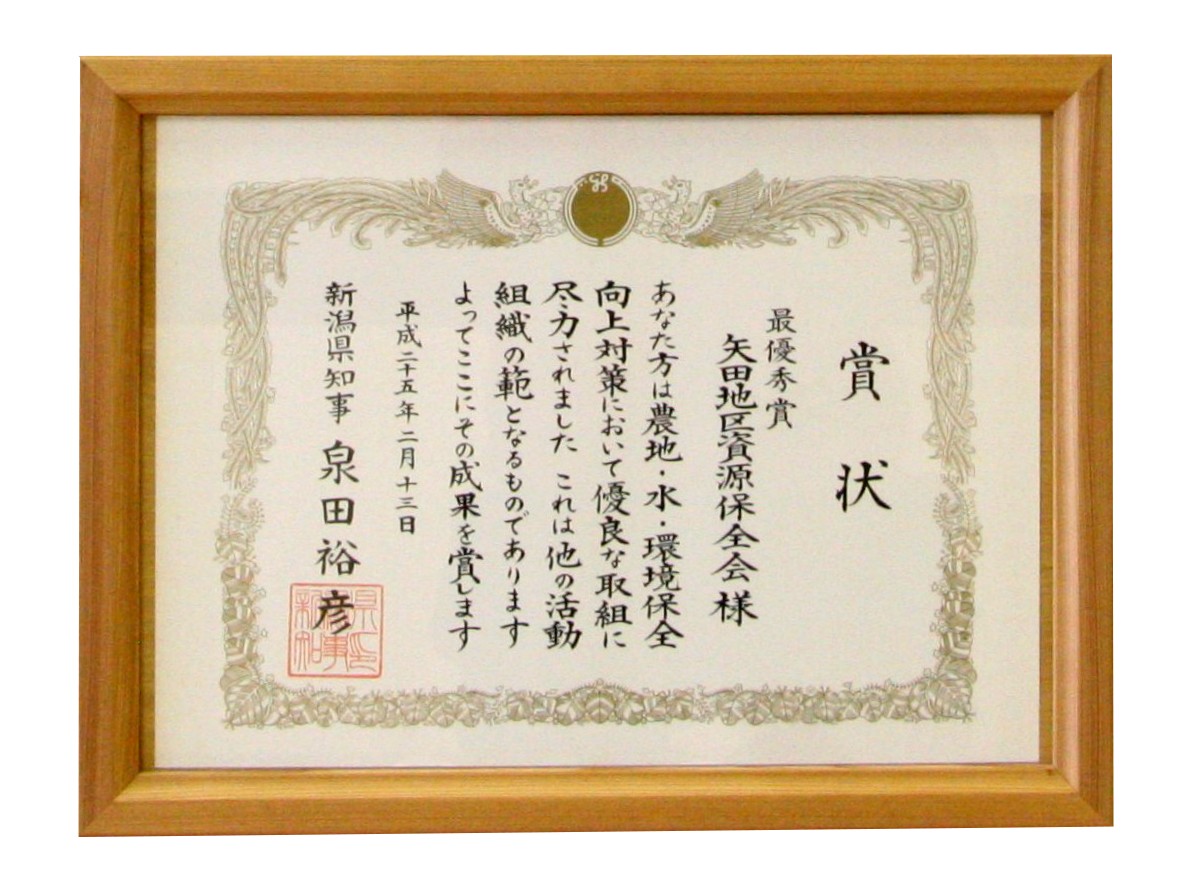 賞状
最優秀賞
矢田地区資源保全会様
あなた方は農地・水・環境保全
向上対策において優良な取組に
尽力されました これは他の活動
組織の範となるものであります
よってここにその成果を賞します
平成二十五年二月十三日
新潟県知事 泉田裕彦